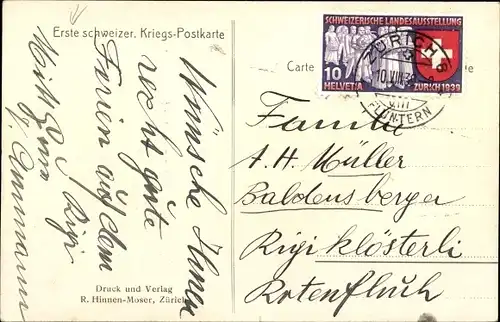 Erste schweizer. Kriegs-Postkarte
Wünsche Ihnen
recht gute
Ferien auf dem
Rigi
Mit Gruss
Ammann
Druck und Verlag
R. Hinnen-Moser, Zürich
Carte
SCHWEIZERISCHE LANDESAUSSTELLUNG
10 HELVETIA ZÜRICH 1939
ZÜRICH 8
10.VIII.39
VIII
FLUNTERN
Familie
A. H. Müller
Baldensberger
Rigi klösterli
Rotenfluh